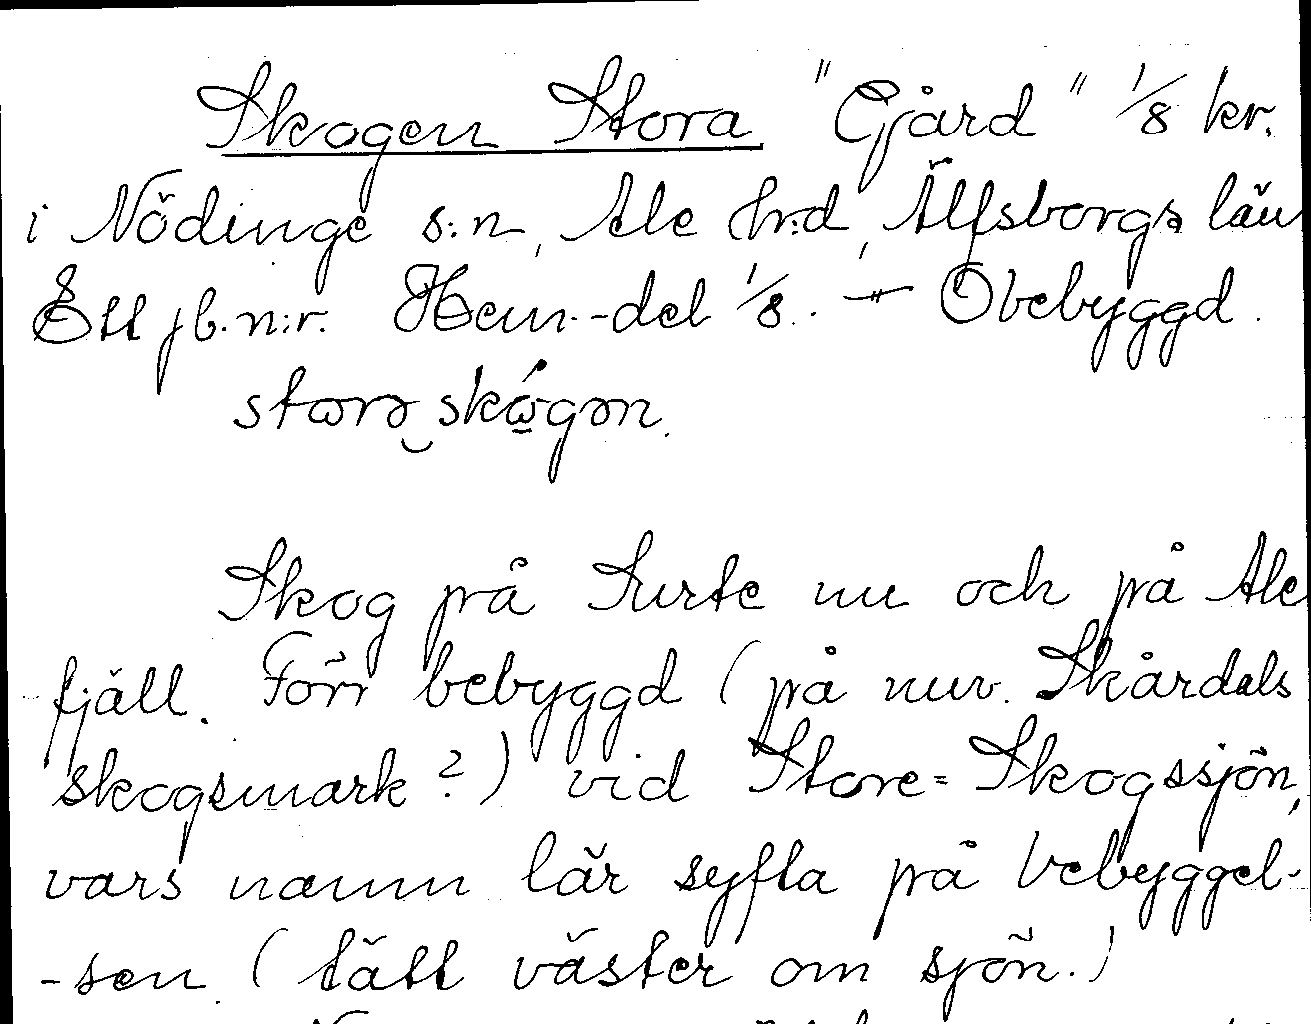 Skogen Stora "Gård" 1/8 kr.
i Nödinge s:n, Ale hrd, Älfsborgs län
Ett jb.n:r. Hem.-del 1/8. — Obebyggd.
storə skógən.
Skog på Surte nu och på Ale
fjäll. Förr bebyggd (på nuv. Skårdals
skogsmark?) vid Store=Skogssjön,
vars namn lär syfta på bebyggel-
-sen (tätt väster om sjön.)